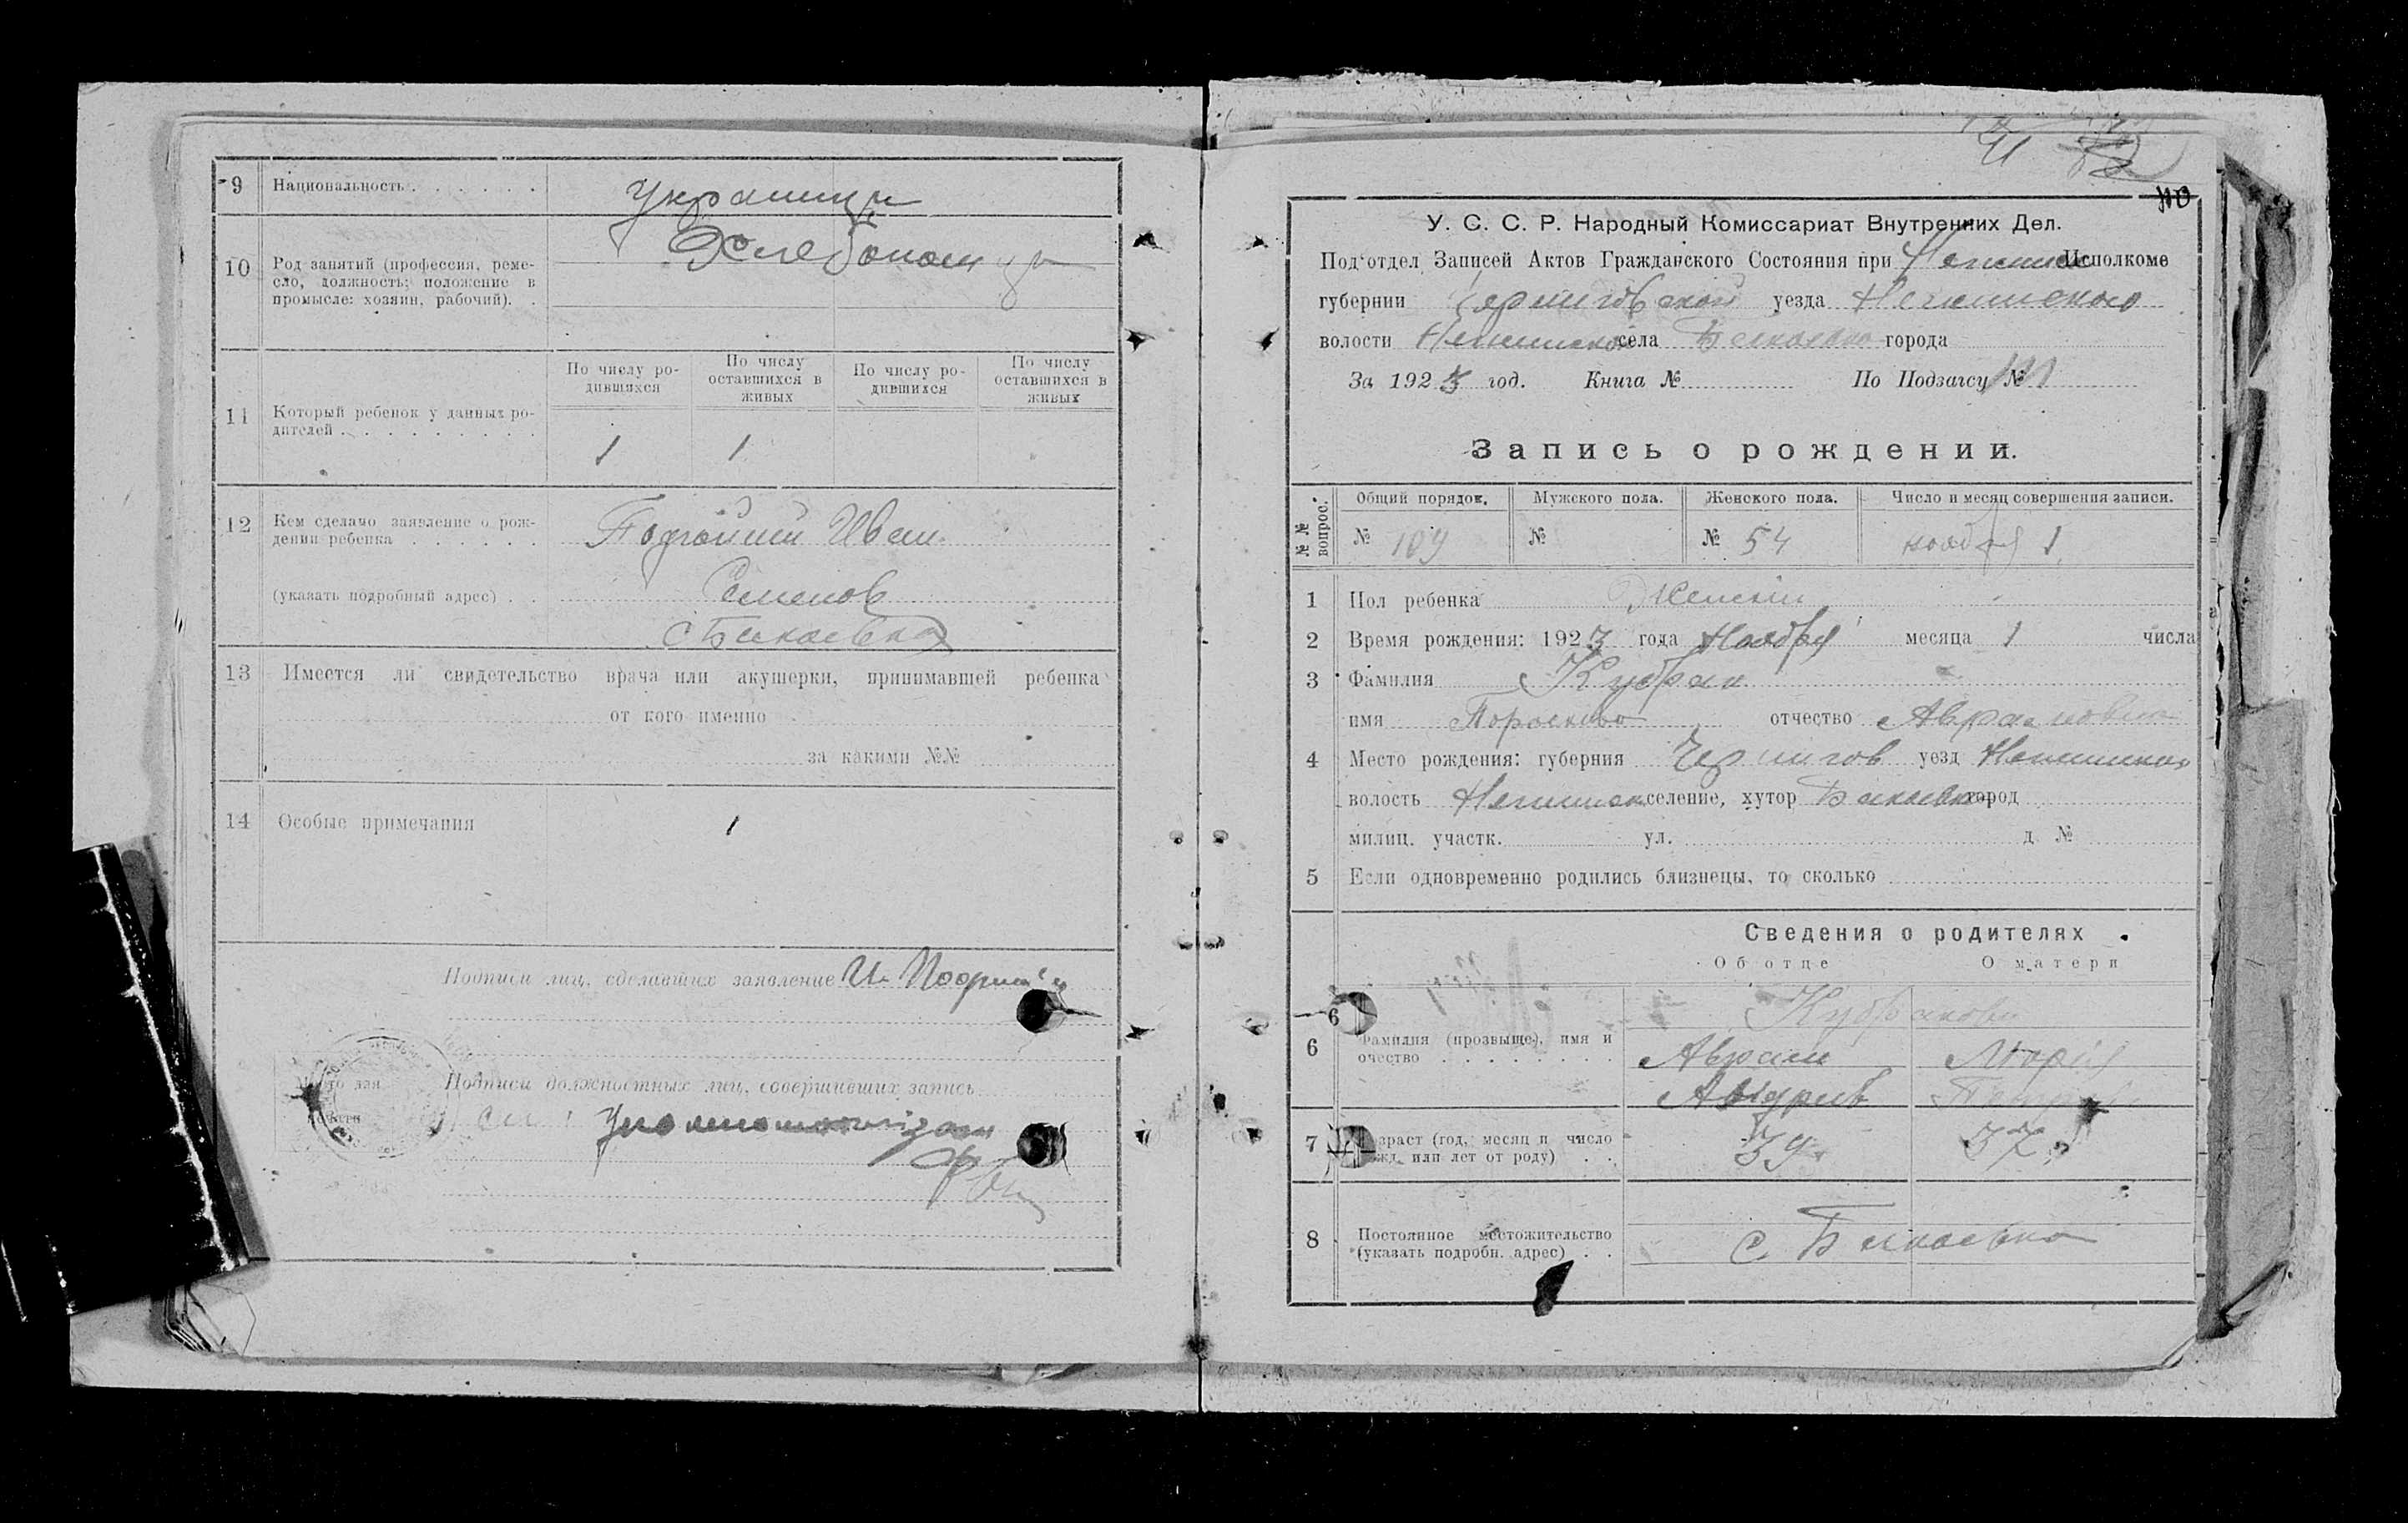 9 Национальность . . . . . . украинци
10 Род занятий (профессия, реме-
сло, должность; положение в
промысле: хозяин, рабочий). .
Хлебопашци
По числу ро-
дившихся
По числу
оставшихся в
живых
По числу ро-
дившихся
По числу
оставшихся в
живых
11 Который ребенок у данных ро-
дителей . . . . . . . . . .
1 1
12 Кем сделано заявление о рож-
дении ребенка . . . . . .
Иван
(указать подробный адрес) . . Семенов
с Бакаевка
13 Имеется ли свидетельство врача или акушерки, принимавшей ребенка
от кого именно
за какими №№
14 Особые примечания
Подписи лиц, сделавших заявление И.
Место для
печати
Подписи должностных лиц, совершивших запись
НО
У. С. С. Р. Народный Комиссариат Внутренних Дел.
Под'отдел Записей Актов Гражданского Состояния при Исполкоме
губернии Черниговской уезда Нежинского
волости Нежинской села Бакаевка города
За 1923 год. Книга № По Подзагсу №
Запись о рождении.
№№ вопрос.
Общий порядок. Мужского пола. Женского пола. Число и месяц совершения записи.
№ 109 № № 54 ноября 1
1 Пол ребенка Женский
2 Время рождения: 1923 года Ноября месяца 1 числа
3 Фамилия Кубрак
имя отчество Аврамовна
4 Место рождения: губерния Чернигов уезд Нежинский
волость Нежинск селение, хутор Бакаевка город
милиц. участк. ул. д. №
5 Если одновременно родились близнецы, то сколько
Сведения о родителях
Об отце О матери
6
Кубракови
6 Фамилия (прозвище), имя и
очество . . . . . . . .
Аврам Мария
7 Возраст (год, месяц и число
рожд. или лет от роду) . .
39 37
8 Постоянное местожительство
(указать подробн. адрес) . .
с. Бакаевка